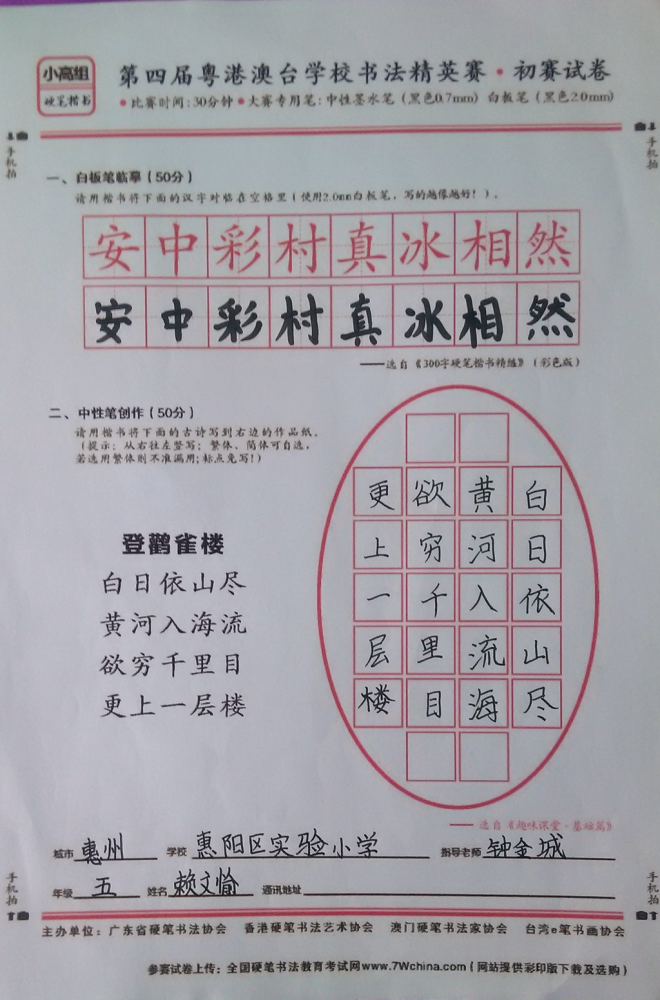 小高组
硬笔楷书
第四届粤港澳台学校书法精英赛·初赛试卷
•比赛时间:30分钟•大赛专用笔:中性墨水笔(黑色0.7mm) 白板笔(黑色2.0mm)
手机拍
手机拍
一、白板笔临摹(50分)
请用楷书将下面的汉字对临在空格里(使用2.0mm白板笔，写的越像越好!)。
安中彩村真冰相然
安中彩村真冰相然
——选自《300字硬笔楷书精练》(彩色版)
二、中性笔创作(50分)
请用楷书将下面的古诗写到右边的作品纸。
(提示：从右往左竖写；繁体、简体可自选，
若选用繁体则不准漏用;标点免写!)
登鹳雀楼
白日依山尽
黄河入海流
欲穷千里目
更上一层楼
白日依山尽
黄河入流海
欲穷千里目
更上一层楼
——选自《趣味课堂·基础篇》
城市 惠州 学校 惠阳区实验小学 指导老师 钟金城
年级 五 姓名 赖文愉 通讯地址
手机拍
手机拍
主办单位：广东省硬笔书法协会 香港硬笔书法艺术协会 澳门硬笔书法家协会 台湾e笔书画协会
参赛试卷上传：全国硬笔书法教育考试网www.7Wchina.com(网站提供彩印版下载及选购)